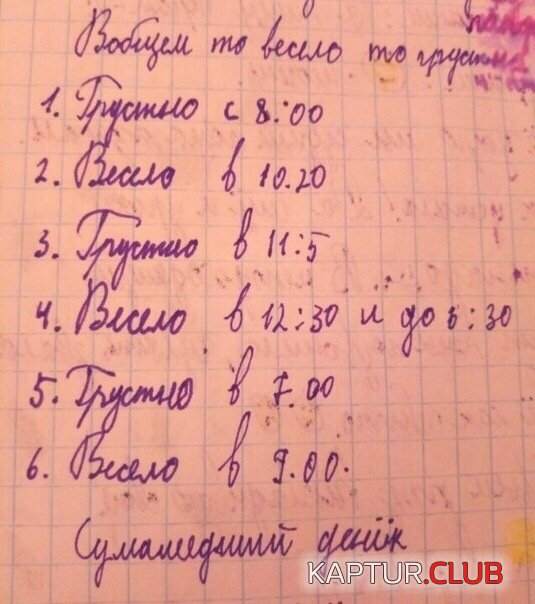 Вобщем то весело то грустно
1. Грустно с 8:00
2. Весело в 10.20
3. Грустно в 11:5
4. Весело в 12:30 и до 5:30
5. Грустно в 7.00
6. Весело в 9.00.
Сумашедний денёк
KAPTUR.CLUB